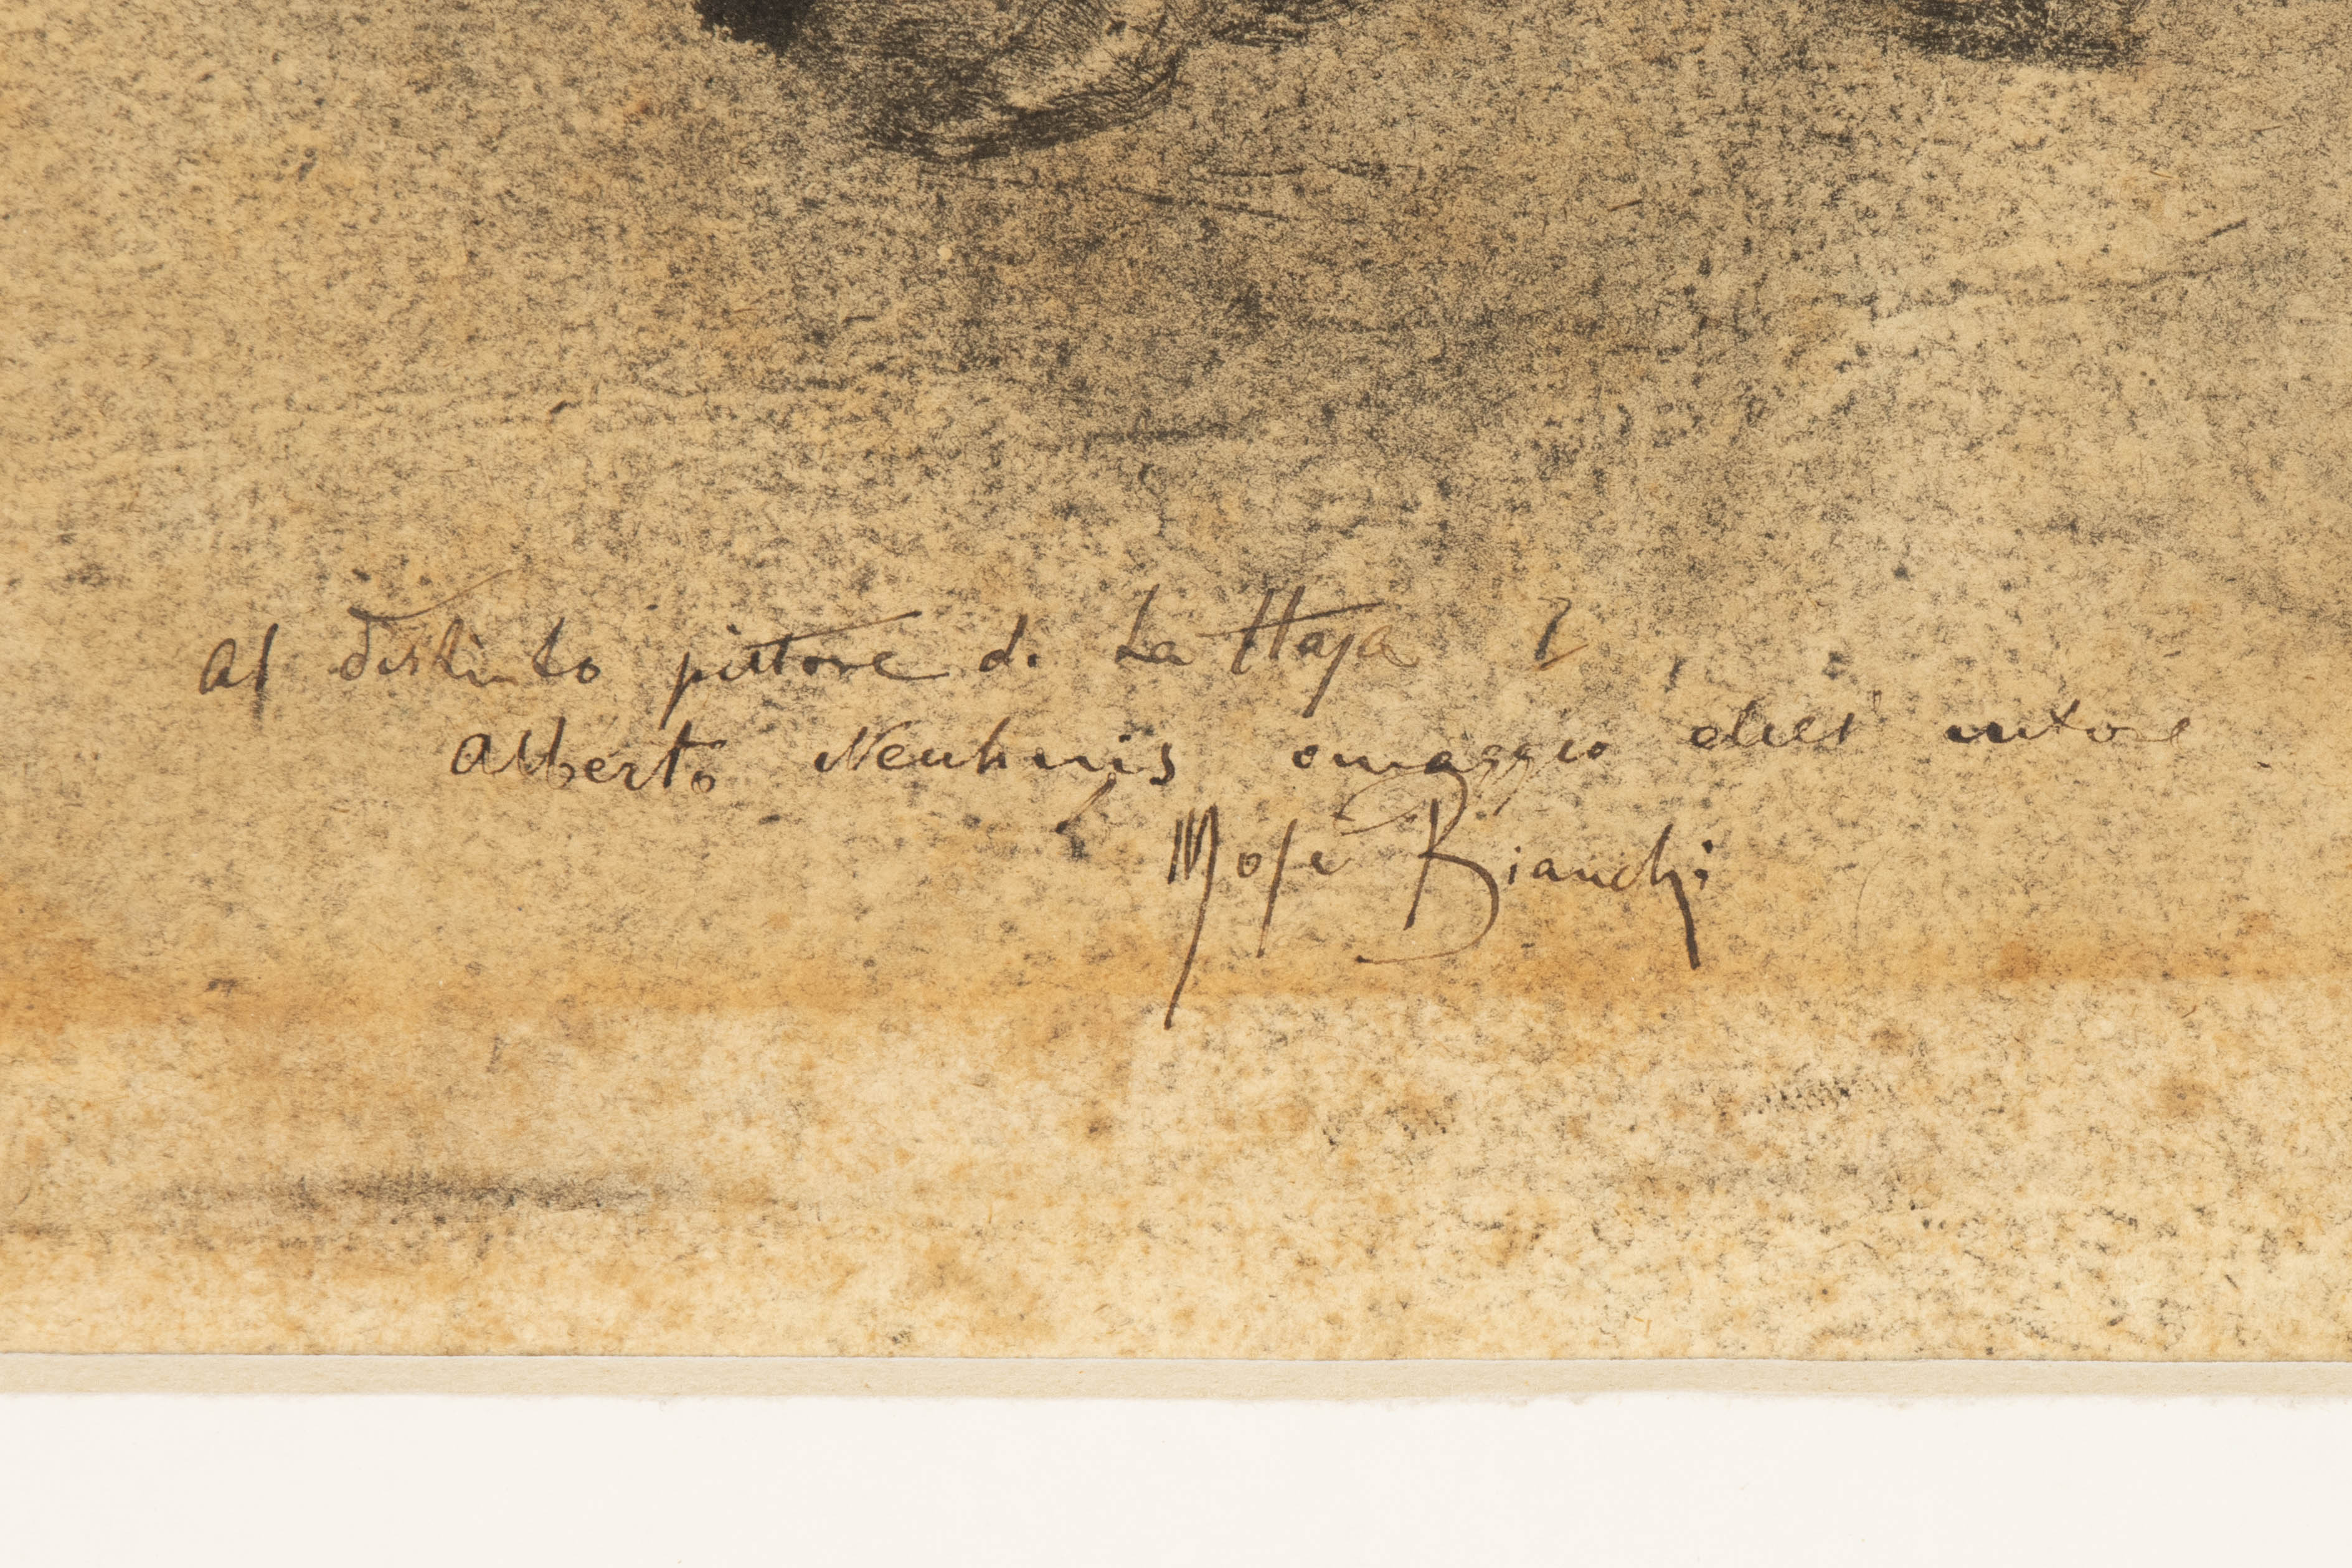 Al distinto pittore di La Haja
Alberto Neuhuis omaggio dell' autore
Mosè Bianchi